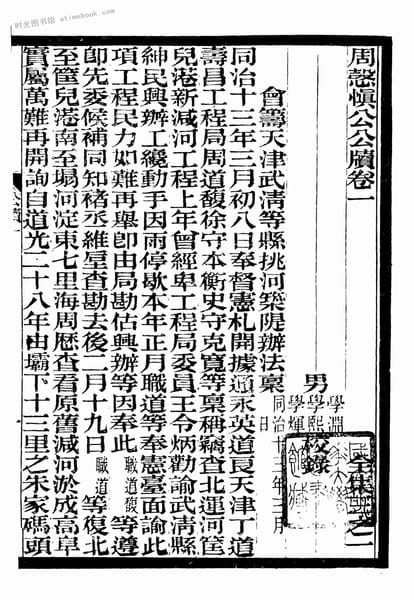 时光图书馆 atimebook.com
周慤慎公公牘卷一
全集之二
男
學淵
學熙
學煇
校錄
會籌天津武清等縣挑河築隄辦法稟
同治十三年三月
同治十三年三月初八日奉督憲札開據通永英道良天津丁道
壽昌工程局周道馥徐守本衡史守克寬等稟稱竊查北運河筐
兒港新減河工程上年曾經卑工程局委員王令炳勸諭武清縣
紳民興辦工纔動手因雨停歇本年正月職道等奉憲臺面諭此
項工程民力如難再舉卽由局勘估興辦等因奉此職道馥等遵
卽先委候補同知褚丞維星查勘去後二月十九日職道等復北
至筐兒港南至塌河淀東七里海周歷查看原舊減河淤成高阜
實屬萬難再開詢自道光二十八年由壩下十三里之朱家碼頭